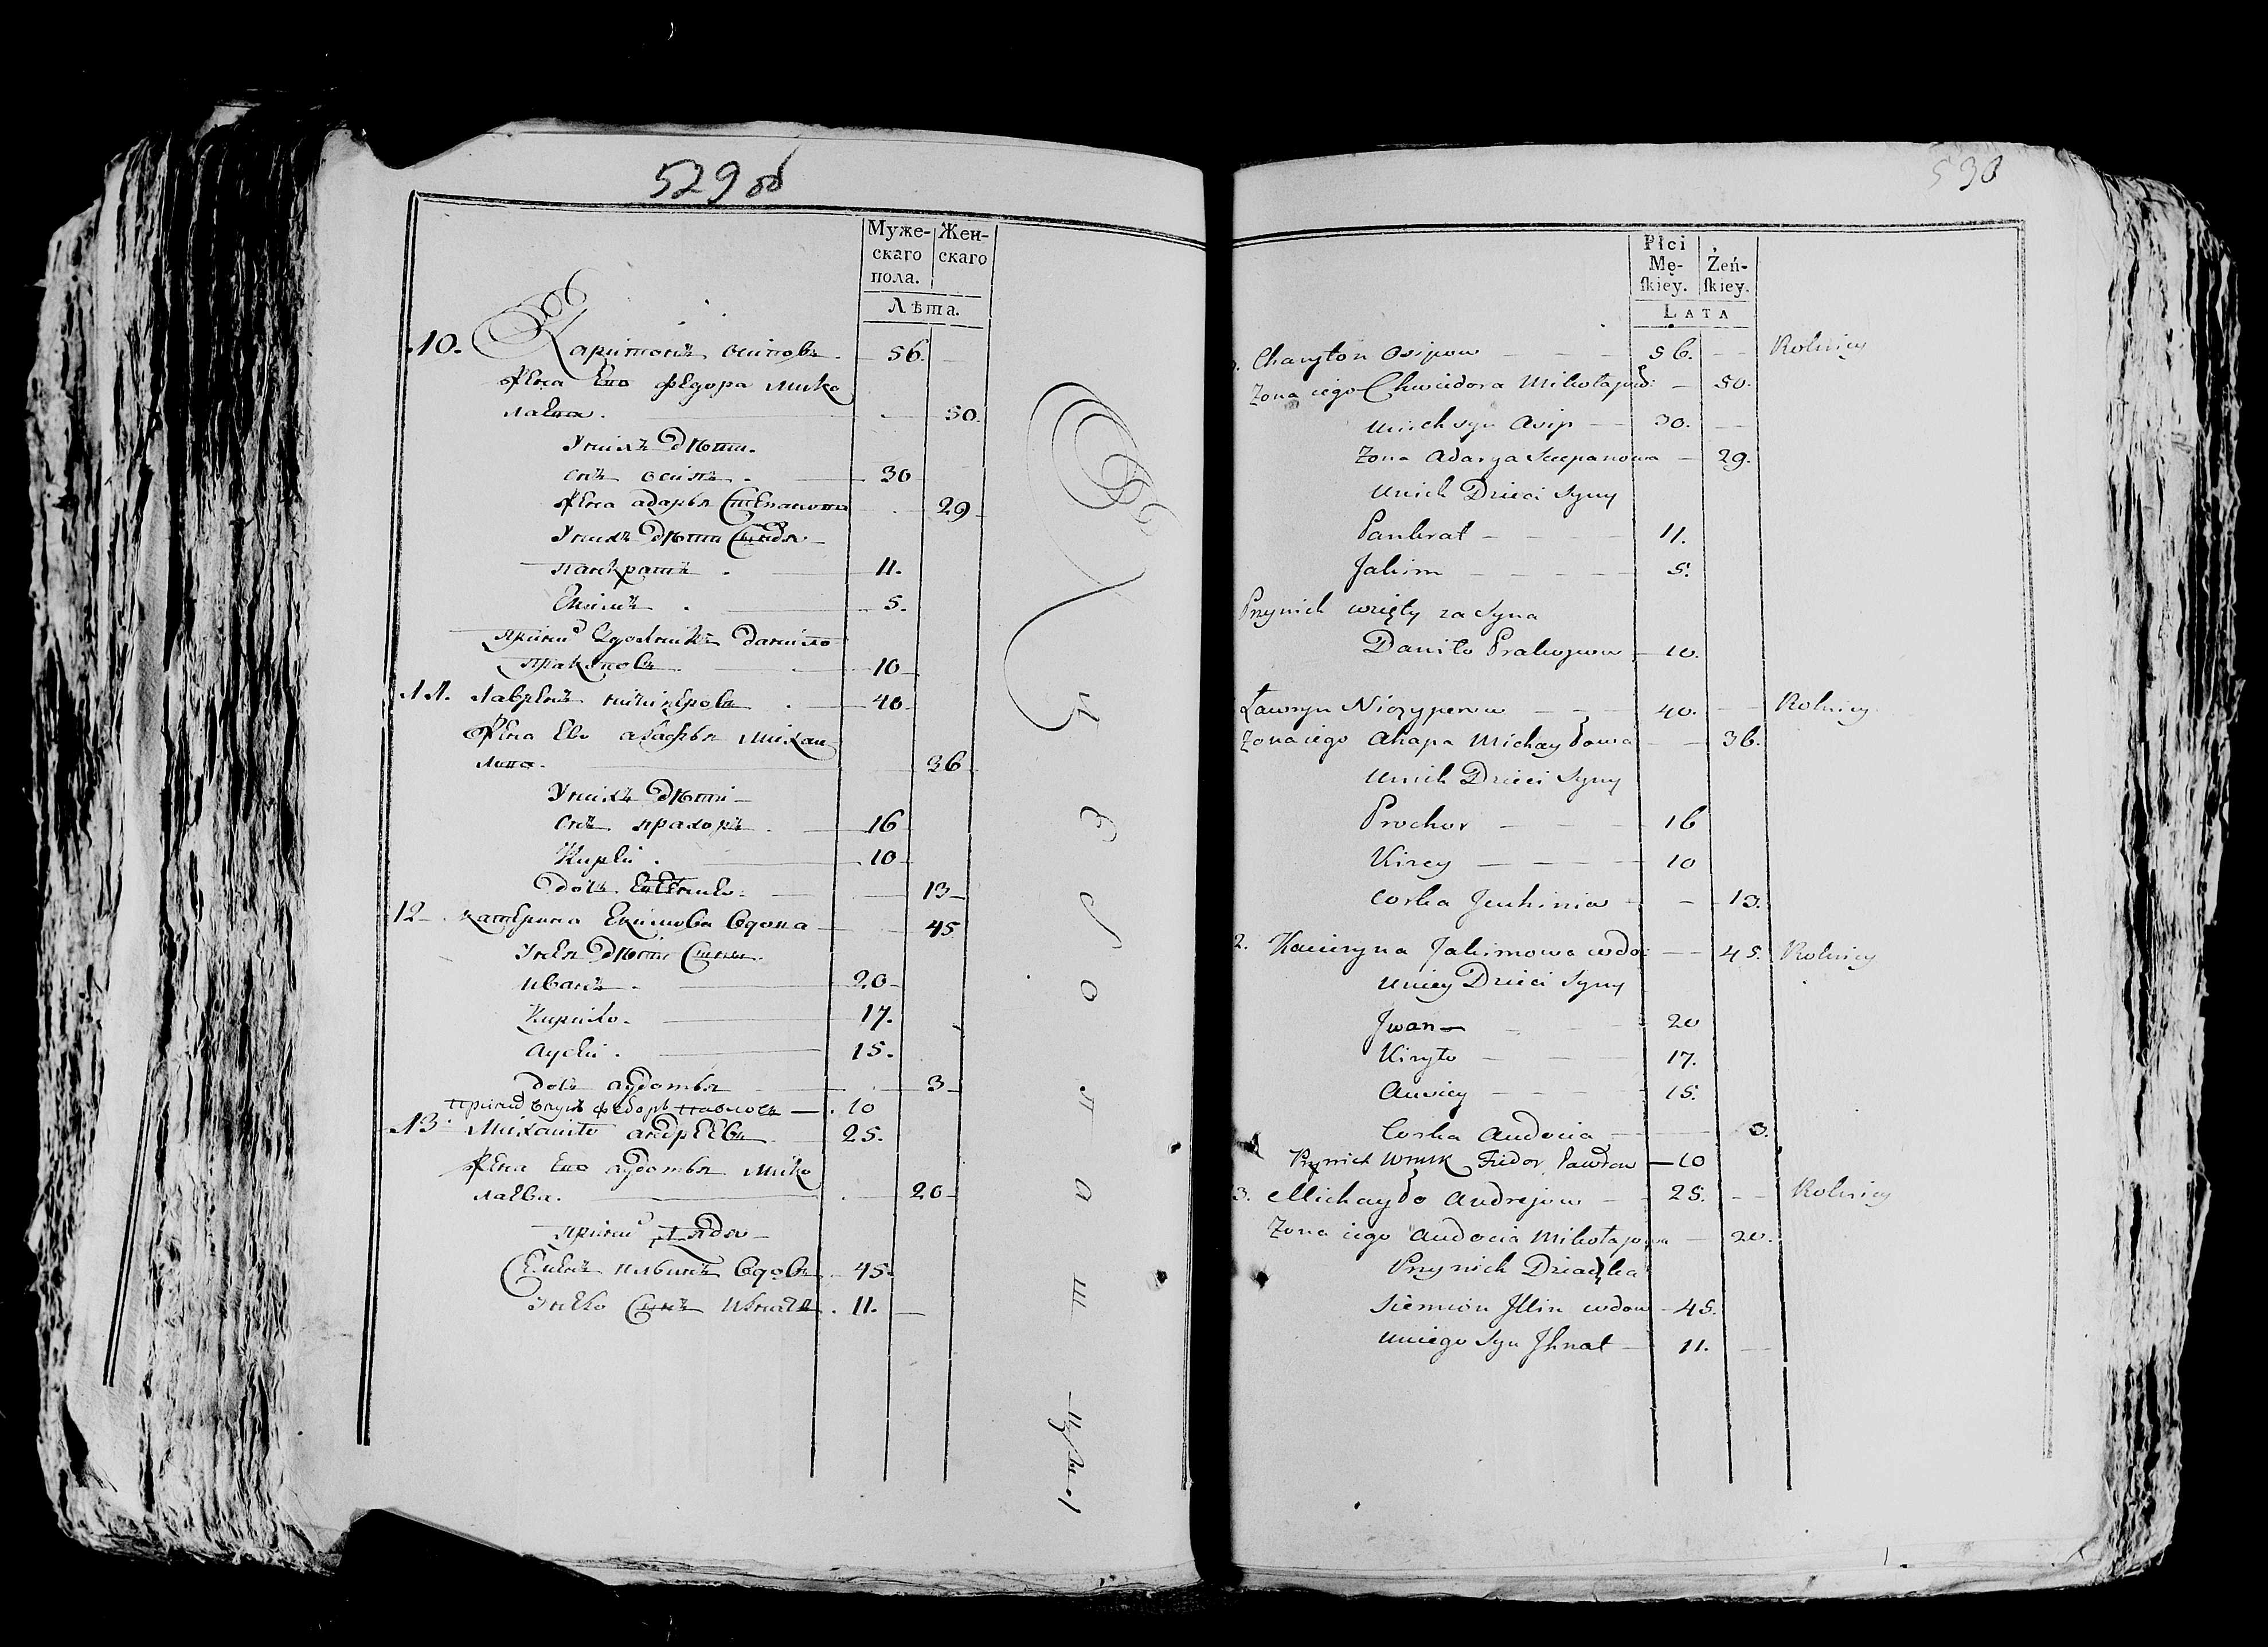 529 об
Муже-
скаго
пола.
Жен-
скаго
Лѣта.
10. Харитонъ осиповъ 56.
жена Ево федора Мико
лаева. 50.
Унихъ дѣти.
снъ осипъ 30
жена адарья Степанова 29
Унихъ дѣти Сыновя
панкратъ 11.
Екимъ 5.
данило
пракоповъ 10
11. Лавренъ ничипоровъ 40
жена Ево агафья Михаи
лова. 36
Унихъ дѣти
снъ прахоръ 16
Кирѣи 10
дочъ 13
12 катерина Екимова вдова 45
Унея дѣти Сыны
иванъ 20
Кирило 17.
аусѣи 15.
дочъ аудотья 3
принихъ внукъ федоръ павловъ 10
13 Михаило андрѣевъ 25.
жена Ево аудотья Мико
лаева. 20
принихъ дядя
Семенъ ильинъ вдовъ 45.
Унево Сынъ игнатъ 11.
530
Płci
Mę-
ſkiey.
Żeń-
ſkiey.
LATA
Charyton Osipow 56. Rolnicy
Zona iego Chwiedora Mikołajow: 50.
Unich syn Asip 30.
Zona Adarya Sciepanowa 29.
Unich Dzieci Syny
Pankrat 11.
Jakim 5.
Przynich wzięty za Syna
Daniło Prakopow 10.
Ławryn Niczyperow 40. Rolnicy
Zona iego Ahapa Michayłowa 36.
Unich Dzieci Syny
Prochor 16
Kirey 10
corka Jeuhinia 13.
2. Kacieryna Jakimowa wdo: 45. Rolnicy
Uniey Dzieci Syny
Jwan 20
Kiryło 17.
Ausiey 15.
Corka Audocia 3.
Przynich Wnuk Fiedor Pawłow 10
3. Michayło Andrejow 25. Rolnicy
Zona iego Audocia Mikołajowa 20.
Przynich Dziadzka
Siemion Jllin wdow 45.
Uniego Syn Jhnat 11.